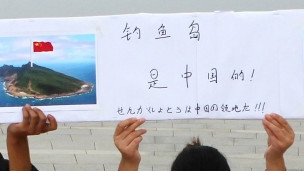 钓鱼岛
是中国的!
せんカくしょとうは中国の領地だ!!!